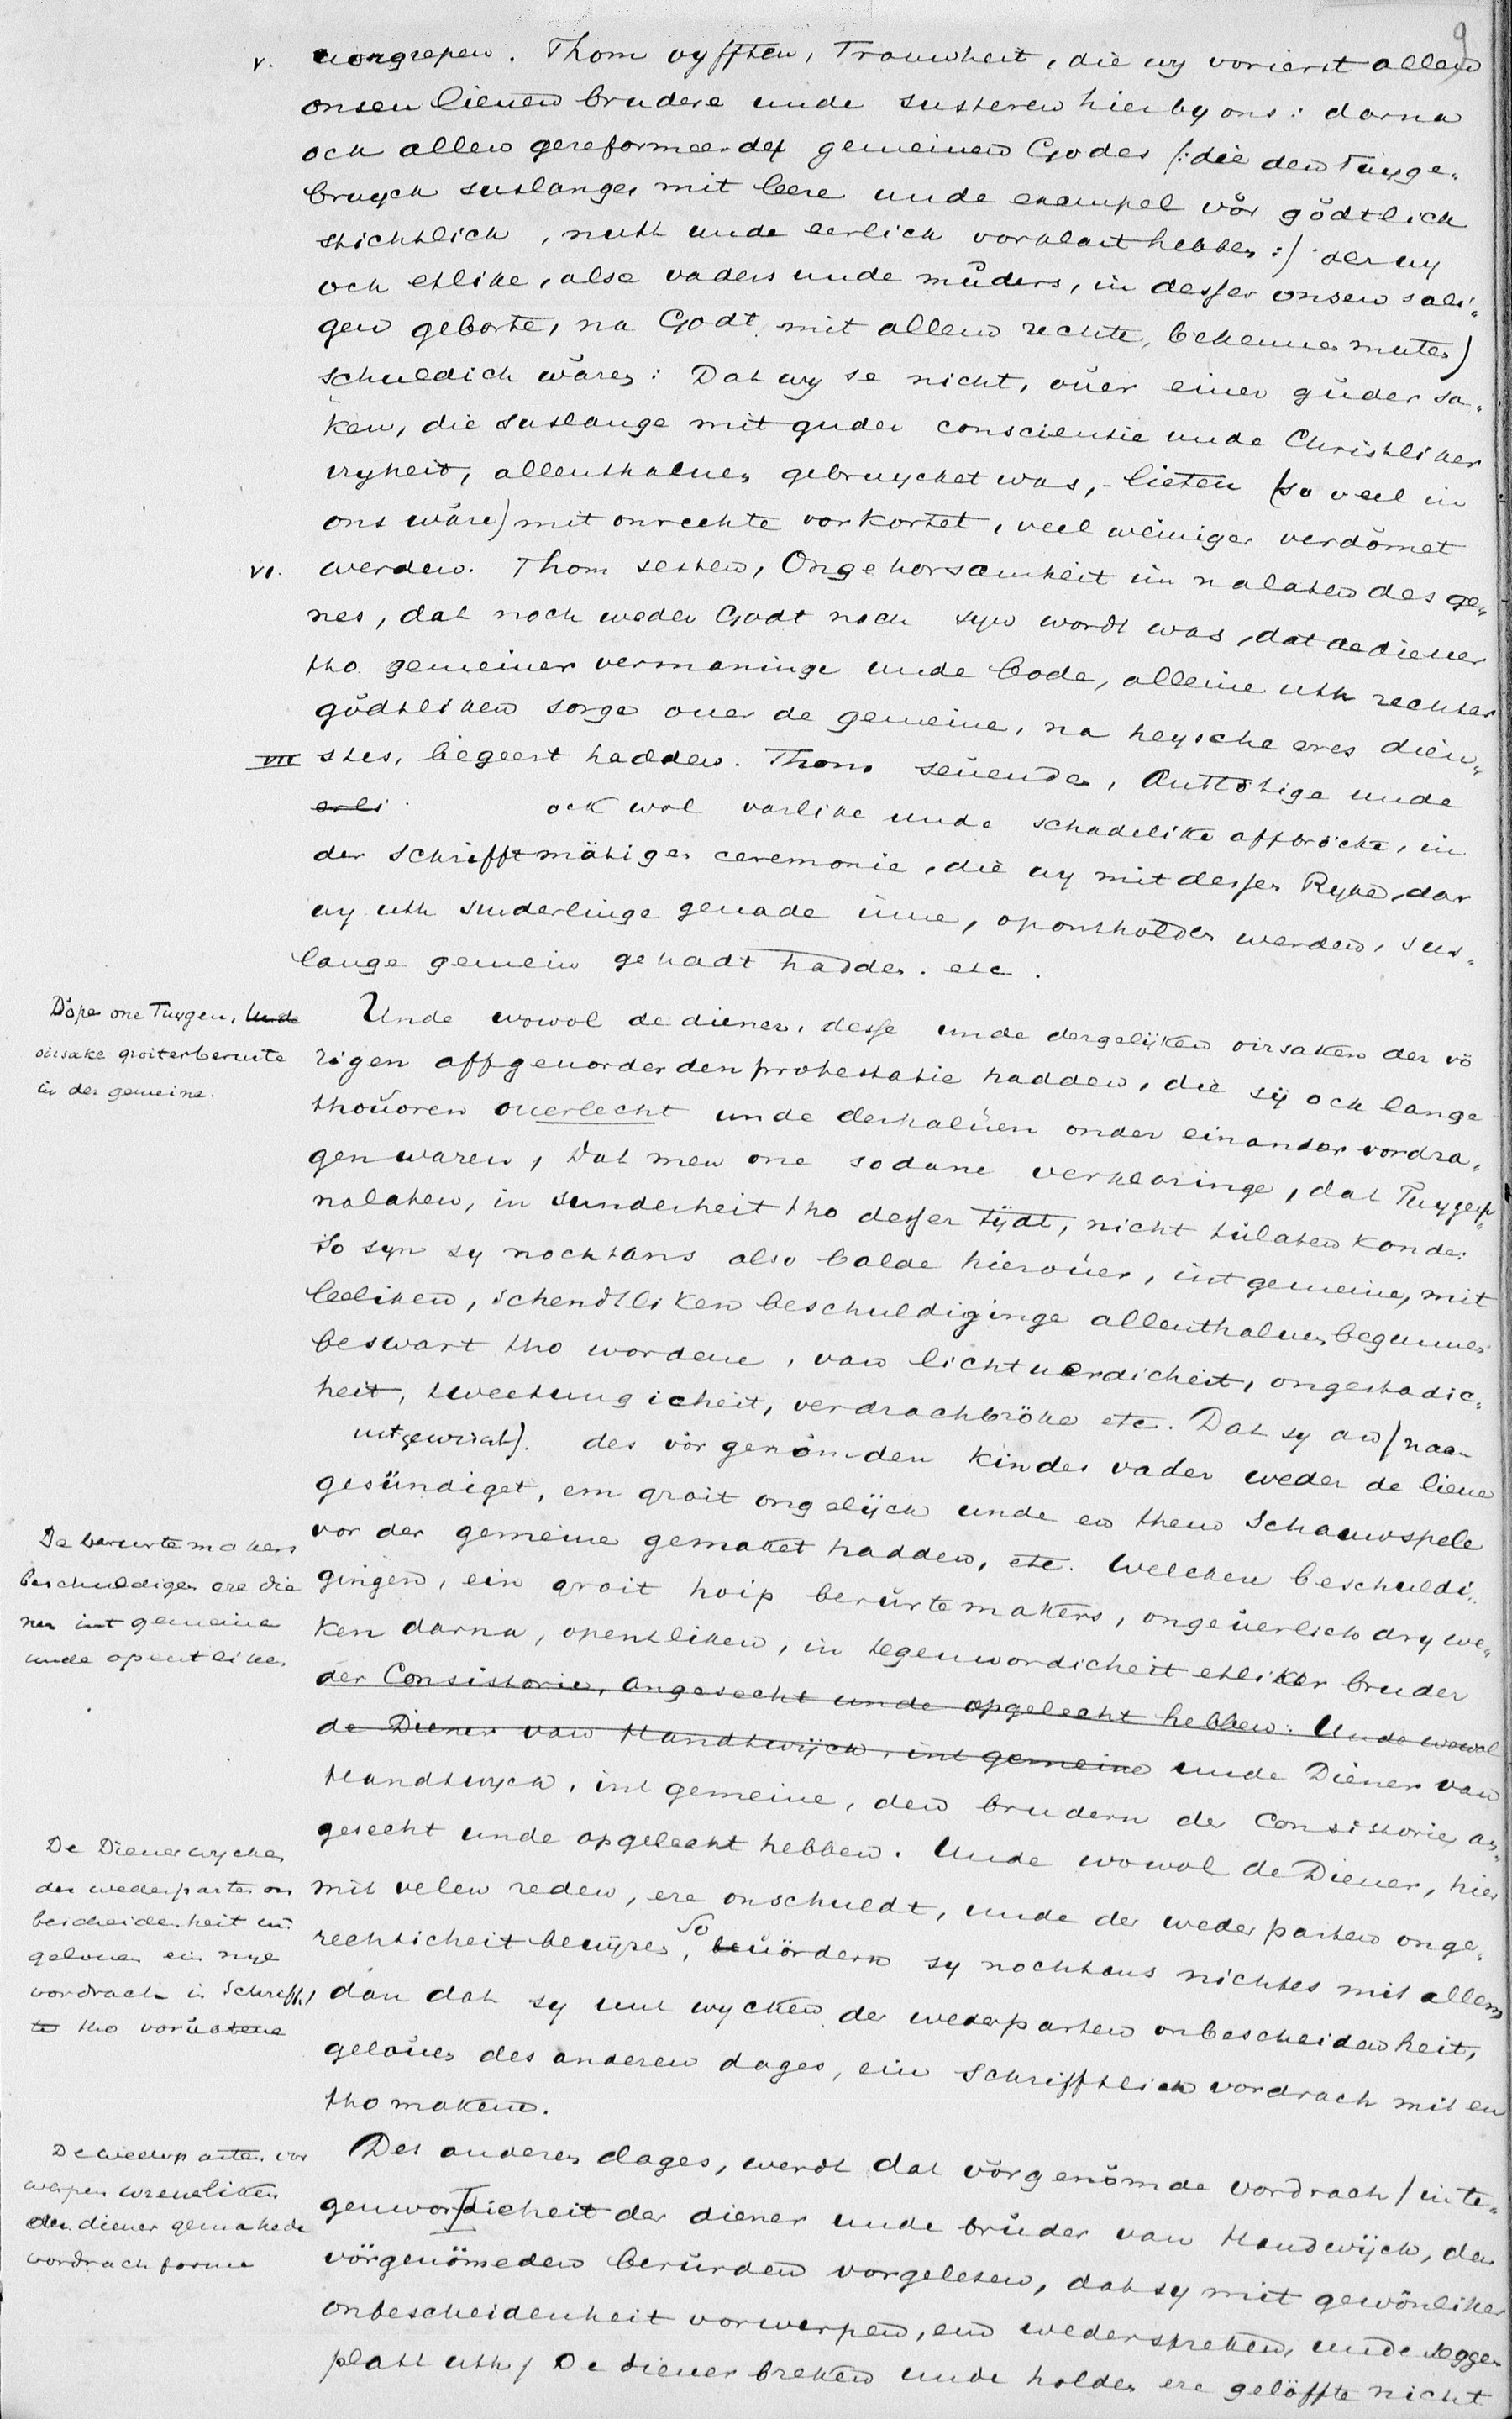 9
v. uorgrepen. Thom vyfften, Trouwheit, die wy vorierst allen
onsen lieuen brudere unde susteren hier by ons: darna
ock allen gereformeerden gemeinen Godes (: die den Tuyge-
bruyck suslanges mit leere unde exempel vör gödtlick
stichtlick, nutt unde eerlick vorklart hebben :) der wy
ock etlike, alse vaders unde müders, in desser onsen sali-
gen geborte, na Godt, mit allen rechte, bekennes muten)
schuldich wären: Dat wy se nicht, ouer einer guder sa-
ken, die suslange mit guder conscientie unde Christliker
vryheit, allenthaluen gebruycket was, lieten (so veel in
ons wäre) mit onrechte vorkortet, veel weiniger verdömet
VI. werden. Thom sesten, Ongehorsamheit im nalaten des ge-
nes, dat noch weder Godt noch syn wordt was, dat de diener
tho gemeiner vermaninge unde bode, alleine uth rechter
gödtliken sorge ouer de gemeine, na heysche eres dien-
VII stes, begeert hadden. Thom seuenden, Onttötige unde
erli ock wol varlike unde schadelike affbröcke, in
der schrifftmätiger ceremonie, die wy mit desser Ryke, dar
wy uth sunderlinge genade inne, oponthalden werden, sus-
lange gemein gehadt hadden. etc.
Döpe one Tuygen, unde
oirsake groiter berurte
in der gemeine.
Unde wowol de diener, desse unde dergelijken oirsaken der vö
rigen affgeuorderden protestatie hadden, die sij ock lange
thouoren ouerlecht unde derhaluen onder einander vordra-
gen waren, Dat men one sodane verklaringe, dat Tuygen
nalaten, in sunderheit tho desser tydt, nicht tulaten konde:
So syn sy nochtans also balde hierouer, int gemeine, mit
leeliken, schendtliken beschuldiginge allenthaluen begunnen
beswart tho wordene, van lichtuerdicheit, ongestadic-
heit, tweetungicheit, verdrachbröke etc. Dat sy an (naam
uitgewischt). des vör genömden kindes vader weder de lieue
gesündiget, em groit ongelyck unde en thom Schauwspele
vor der gemeine gemaket hadden, etc. Welcken beschuldi-
De berurtemakers
beschuldigen ere die
ner int gemeine
unde opentliken
gingen, ein groit hoip berurtemakers, ongeuerlick dry we-
ken darna, opentliken, in tegenwordicheit etliker bruder
der Consistorien, angesecht unde opgelecht hebben: Unde wowol
de Diener van Handtwijck, int gemeine unde Diener van
Handtwyck, int gemeine, den brudern der Consistorie an-
gesecht unde opgelecht hebben. Unde wowol de Diener, hier
De Diener wycken
der wederparten on
bescheidenheit un
gelouen ein nye
vordrach in schrifft,
to tho voruatene
mit velen reden, ere onschuldt, unde der wederparten onge-
rechticheit bewysen, So uördern sy nochtans nichtes mit allem
dan dat sy umt wycken der wederparten onbescheidenheit,
gelöuen des anderen dages, ein Schrifftlick vordrach mit en
tho maken.
De wederparten vor
werpen wreueliken
der diener gemakede
vordrach forme
Des anderen dages, werdt dat vörgenömde vordrach / in te-
genwordicheit der diener unde brüder van Handwijck, den
vörgenömeden berürden vorgelesen, dat sy mit gewönliker
onbescheidenheit vorwerpen, em wederspreken, unde seggen
platt uth / De diener breken unde holden ere gelöffte nicht